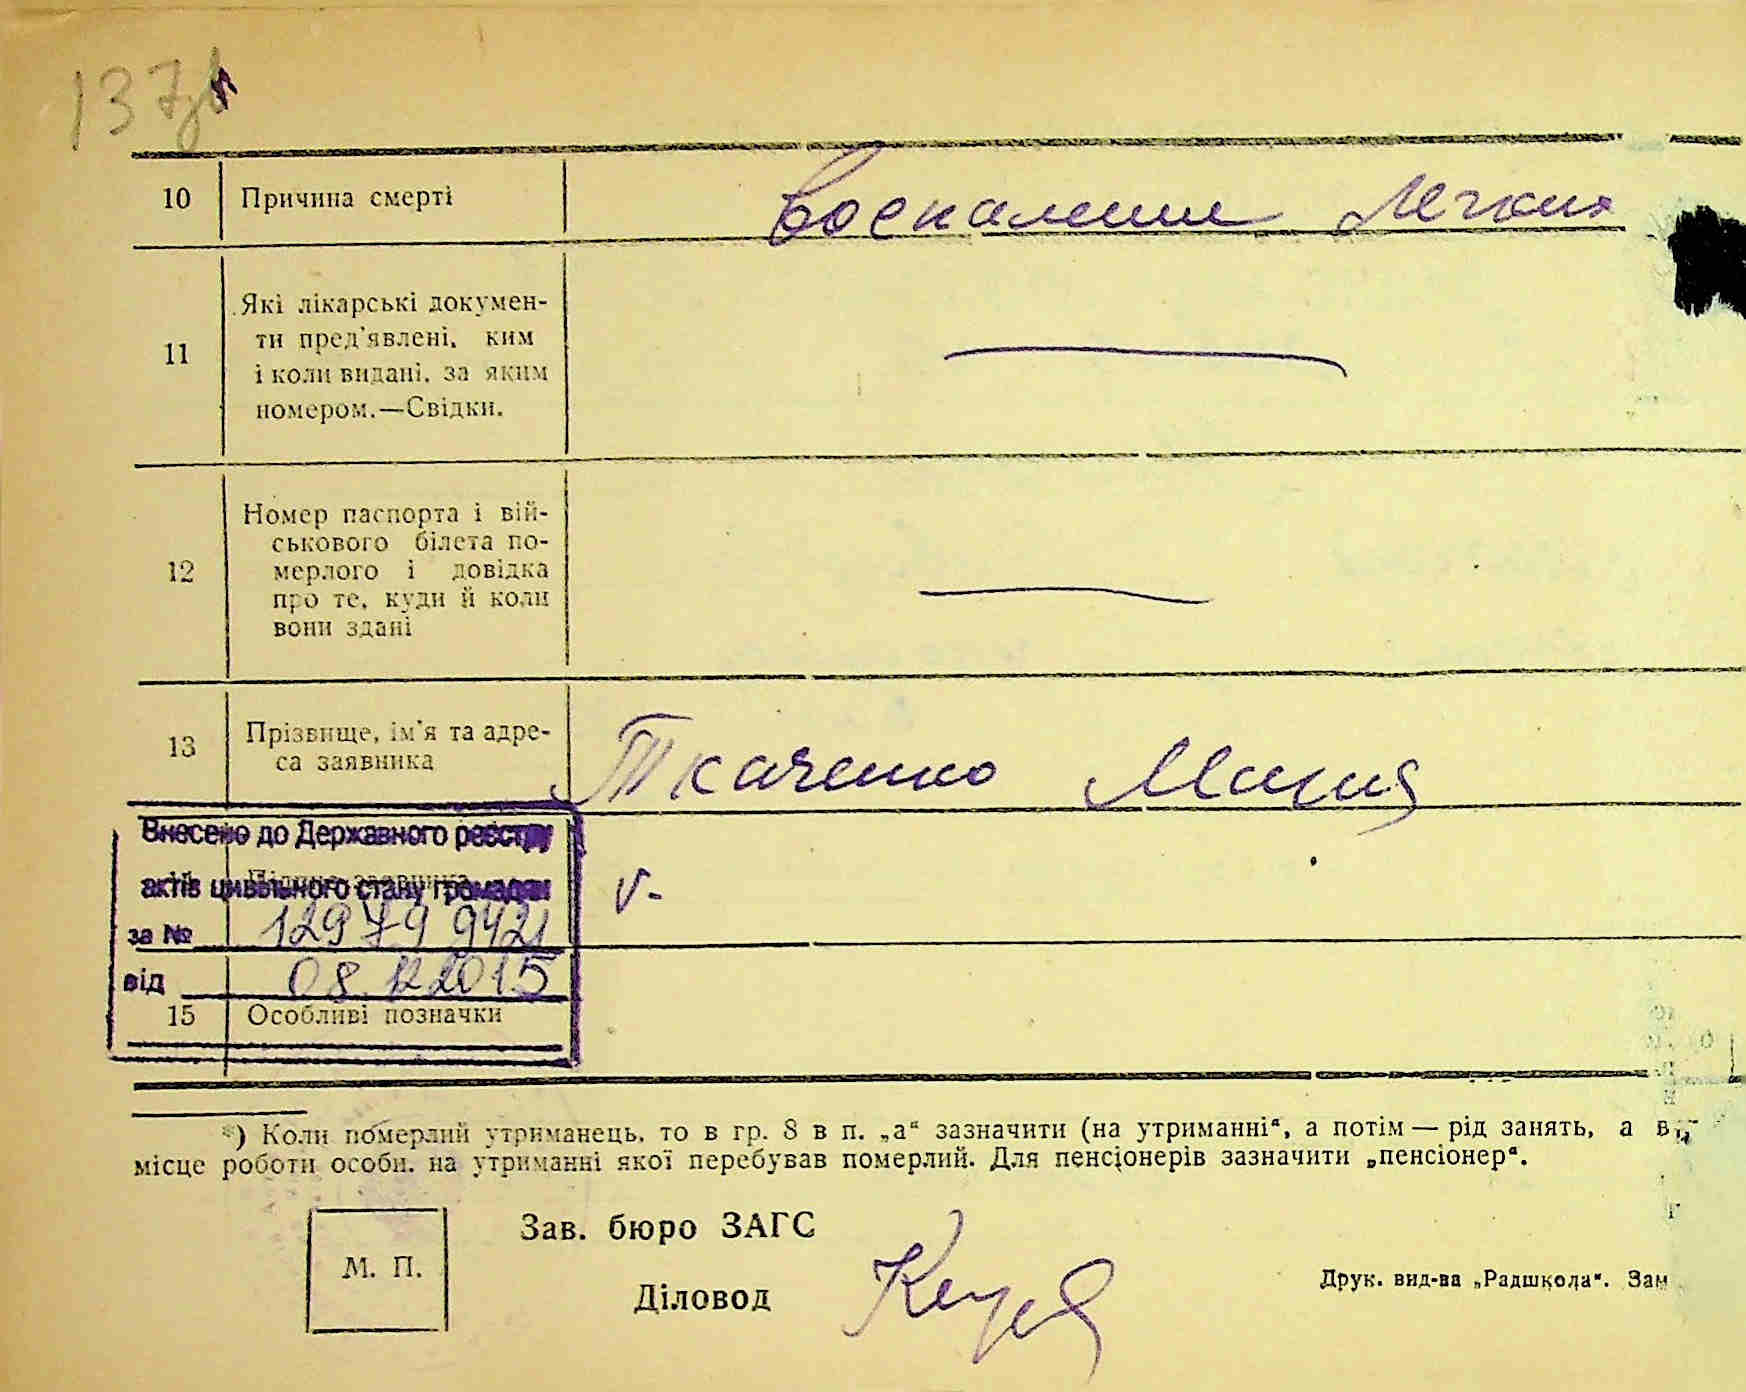 137
10 Причина смерті Воспаление Легких
11 Які лікарські докумен-
ти пред'явлені, ким
і коли видані, за яким
номером.—Свідки.
12 Номер паспорта і вій-
ськового білета по-
мерлого і довідка
про те, куди й коли
вони здані
13 Прізвище, ім'я та адре-
са заявника Ткаченко Мария
Внесено до Державного реєстру
актів цивільного стану громадян
за № 12979 9421
від 08.12.2015
15 Особливі позначки
*) Коли померлий утриманець, то в гр. 8 в п. „а“ зазначити (на утриманні“, а потім — рід занять, а в
місце роботи особи, на утриманні якої перебував померлий. Для пенсіонерів зазначити „пенсіонер“.
Зав. бюро ЗАГС
М. П.
Діловод
Друк. вид-ва „Радшкола“. Зам